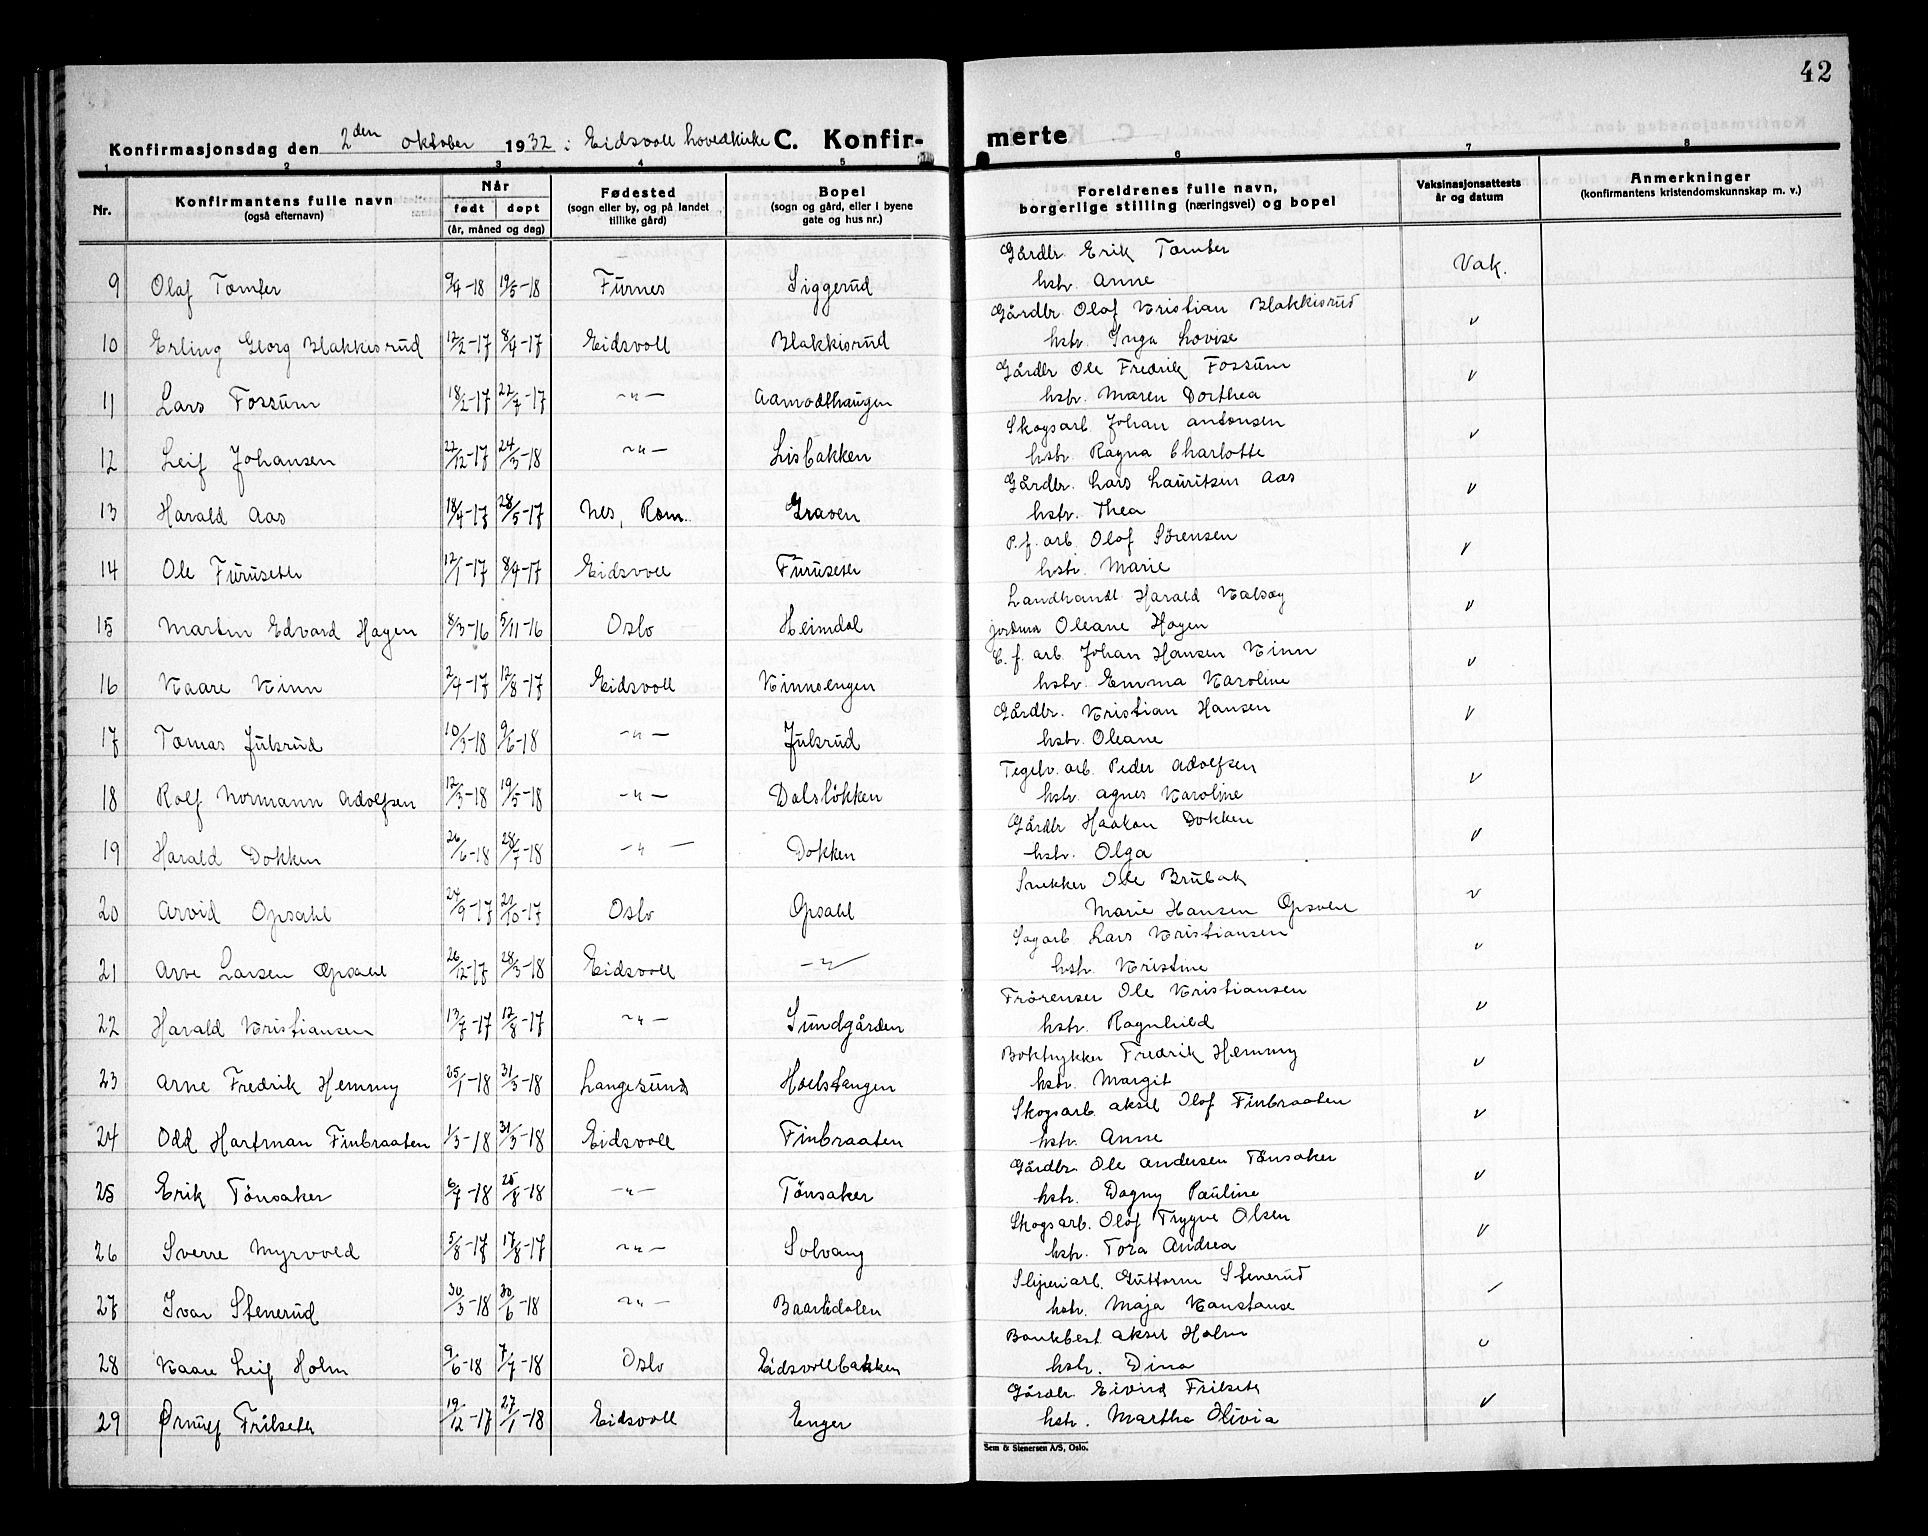 42
Konfirmasjonsdag den 2den oktober 1932 i Eidsvoll hovedkirke C. Konfir- merte
1 2 3 4 5 6 7 8
Nr. Konfirmantens fulle navn (også efternavn) Når født døpt (år, måned og dag) Fødested (sogn eller by, og på landet tillike gård) Bopel (sogn og gård, eller i byene gate og hus nr.) Foreldrenes fulle navn, borgerlige stilling (næringsvei) og bopel Vaksinasjonsattests år og datum Anmerkninger (konfirmantens kristendomskunnskap m. v.)
Gårdbr. Erik Tomter
9 Olaf Tomter 9/4-18 19/5-18 Furnes Siggerud hstr. Anne Vak.
Gårdbr. Olof Kristian Blakkisrud
10 Erling Georg Blakkisrud 12/2-17 8/4-17 Eidsvoll Blakkisrud hstr. Inga Lovise v
Gårdbr Ole Fredrik Fossum
11 Lars Fossum 18/2-17 22/7-17 -"- Aamodthaugen hstr. Maren Dorthea v
Skogsarb. Johan Antonsen
12 Leif Johansen 22/12-17 24/3-18 -"- Lisbakken hstr. Ragna Charlotte v
Gårdbr. Lars Lauritsen Aas
13 Harald Aas 18/4-17 28/5-17 Nes, Rom. Graven hstr. Thea v
P.f. arb. Olof Sørensen
14 Ole Furuseth 12/1-17 8/4-17 Eidsvoll Furuseth hstr. Marie v
Landhandl. Harald Kalsøy
15 Martin Edvard Hagen 8/3-16 5/11-16 Oslo Heimdal jordma Oleane Hagen v
C. f. arb. Johan Hansen Kinn
16 Kaare Kinn 2/4-17 12/8-17 Eidsvoll Kinnsengen hstr. Emma Karoline v
Gårdbr. Kristian Hansen
17 Tomas Julsrud 10/3-18 9/6-18 -"- Julsrud hstr. Oleane v
Teglv. arb. Peder Adolfsen
18 Rolf Normann Adolfsen 12/3-18 19/5-18 -"- Dalsløkken hstr. Agnes Karoline v
Gårdbr Haakon Dokken
19 Harald Dokken 26/6-18 28/7-18 -"- Dokken hstr. Olga v
Snekker Ole Brubak
20 Arvid Opsahl 27/9-17 21/10-17 Oslo Opsahl Marie Hansen v
Sagarb Lars Kristiansen
21 Arve Larsen Opsahl 26/12-17 28/3-18 Eidsvoll -"- hstr. Kristine v
Frørenser Ole Kristiansen
22 Harald Kristiansen 13/7-17 12/8-17 -"- Sundgården hstr. Ragnhild v
Boktrykker Fredrik Hemmy
23 Arne Fredrik Hemmy 25/1-18 31/3-18 Langesund Hoelstangen hstr. Margit v
Skogsarb. Aksel Olof Finbraaten
24 Odd Hartman Finbraaten 1/3-18 31/3-18 Eidsvoll Finbraaten hstr. Anne v
Gårdbr. Ole Andersen Tønsaker
25 Erik Tønsaker 6/7-18 25/8-18 -"- Tønsaker hstr. Dagny Pauline v
Skogsarb. Olof Trygve Olsen
26 Sverre Myrvold 5/8-17 17/8-17 -"- Solvang hstr. Tora Andrea v
Sliperiarb. Guttorm Stenerud
27 Ivar Stenerud 30/3-18 30/6-18 -"- Baarlidalen hstr. Maja Konstanse
Bankbest. Aksel Holm
28 Kaare Leif Holm 9/6-18 7/7-18 Oslo Eidsvollbakken hstr. Dina v
Gårdbr. Eivind Frilseth
29 Ørnulf Frilseth 19/12-17 27/1-18 Eidsvoll Enger hstr. Martha Olivia v
Sem & Stenersen A/S, Oslo.